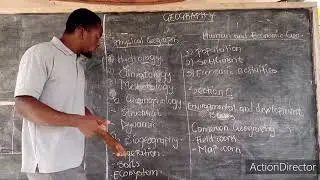 GEOGRAPHY
Physical Geograph
Hydrology
Climatology
Geomorphology
Structural
Dynamic
Biogeography
Vegetation
Soils
Ecosystem
Human and Economic Geo
1) population
2) Settlement
3) Economic activities
Section C
Environmental and development
Issues
Common
Field work
Map work
ActionDirector